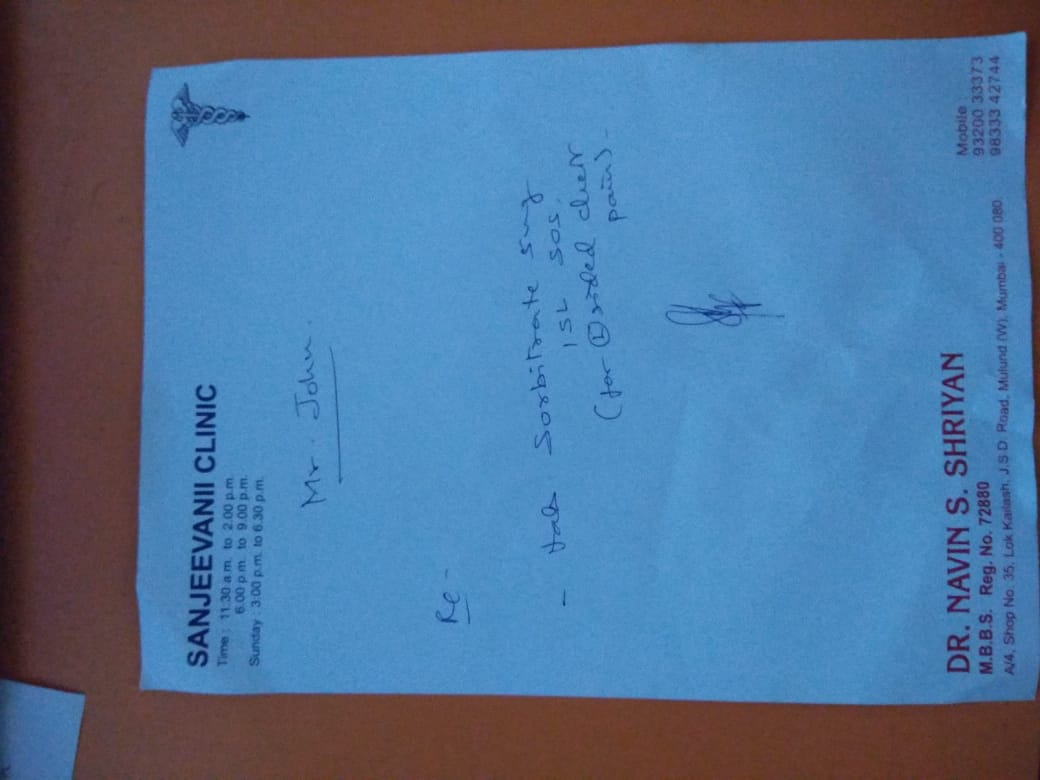 SANJEEVANII CLINIC
Time : 11:30 a.m. to 2.00 p.m.
6.00 p.m. to 9.00 p.m.
Sunday : 3:00 p.m. to 6.30 p.m.
Mr. John.
Re -
- tab Sorbitrate 5mg
1 SL SOS.
(for Ⓛ sided chest
pain) -
DR. NAVIN S. SHRIYAN
M.B.B.S. Reg. No. 72880
A/4, Shop No. 35, Lok Kailash, J.S.D. Road, Mulund (W), Mumbai - 400 080.
Mobile :
93200 33373
98333 42744